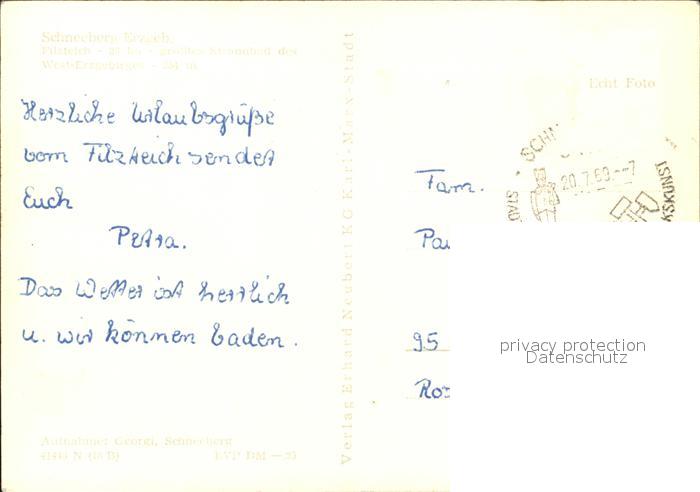 Schneeberg Erzgeb.
Filzteich - 23 ha - größtes Strandbad des
West-Erzgebirges -
Herzliche Urlaubsgrüße
vom Filzteich sendet
Euch
Petra.
Das Wetter ist herrlich
u. wir können baden.
Aufnahme: Georgi, Schneeberg
EVP DM
Verlag Erhard Neubert KG Karl-Marx-Stadt
Echt Foto
20.7.69.--7
Fam.
95
privacy protection
Datenschutz